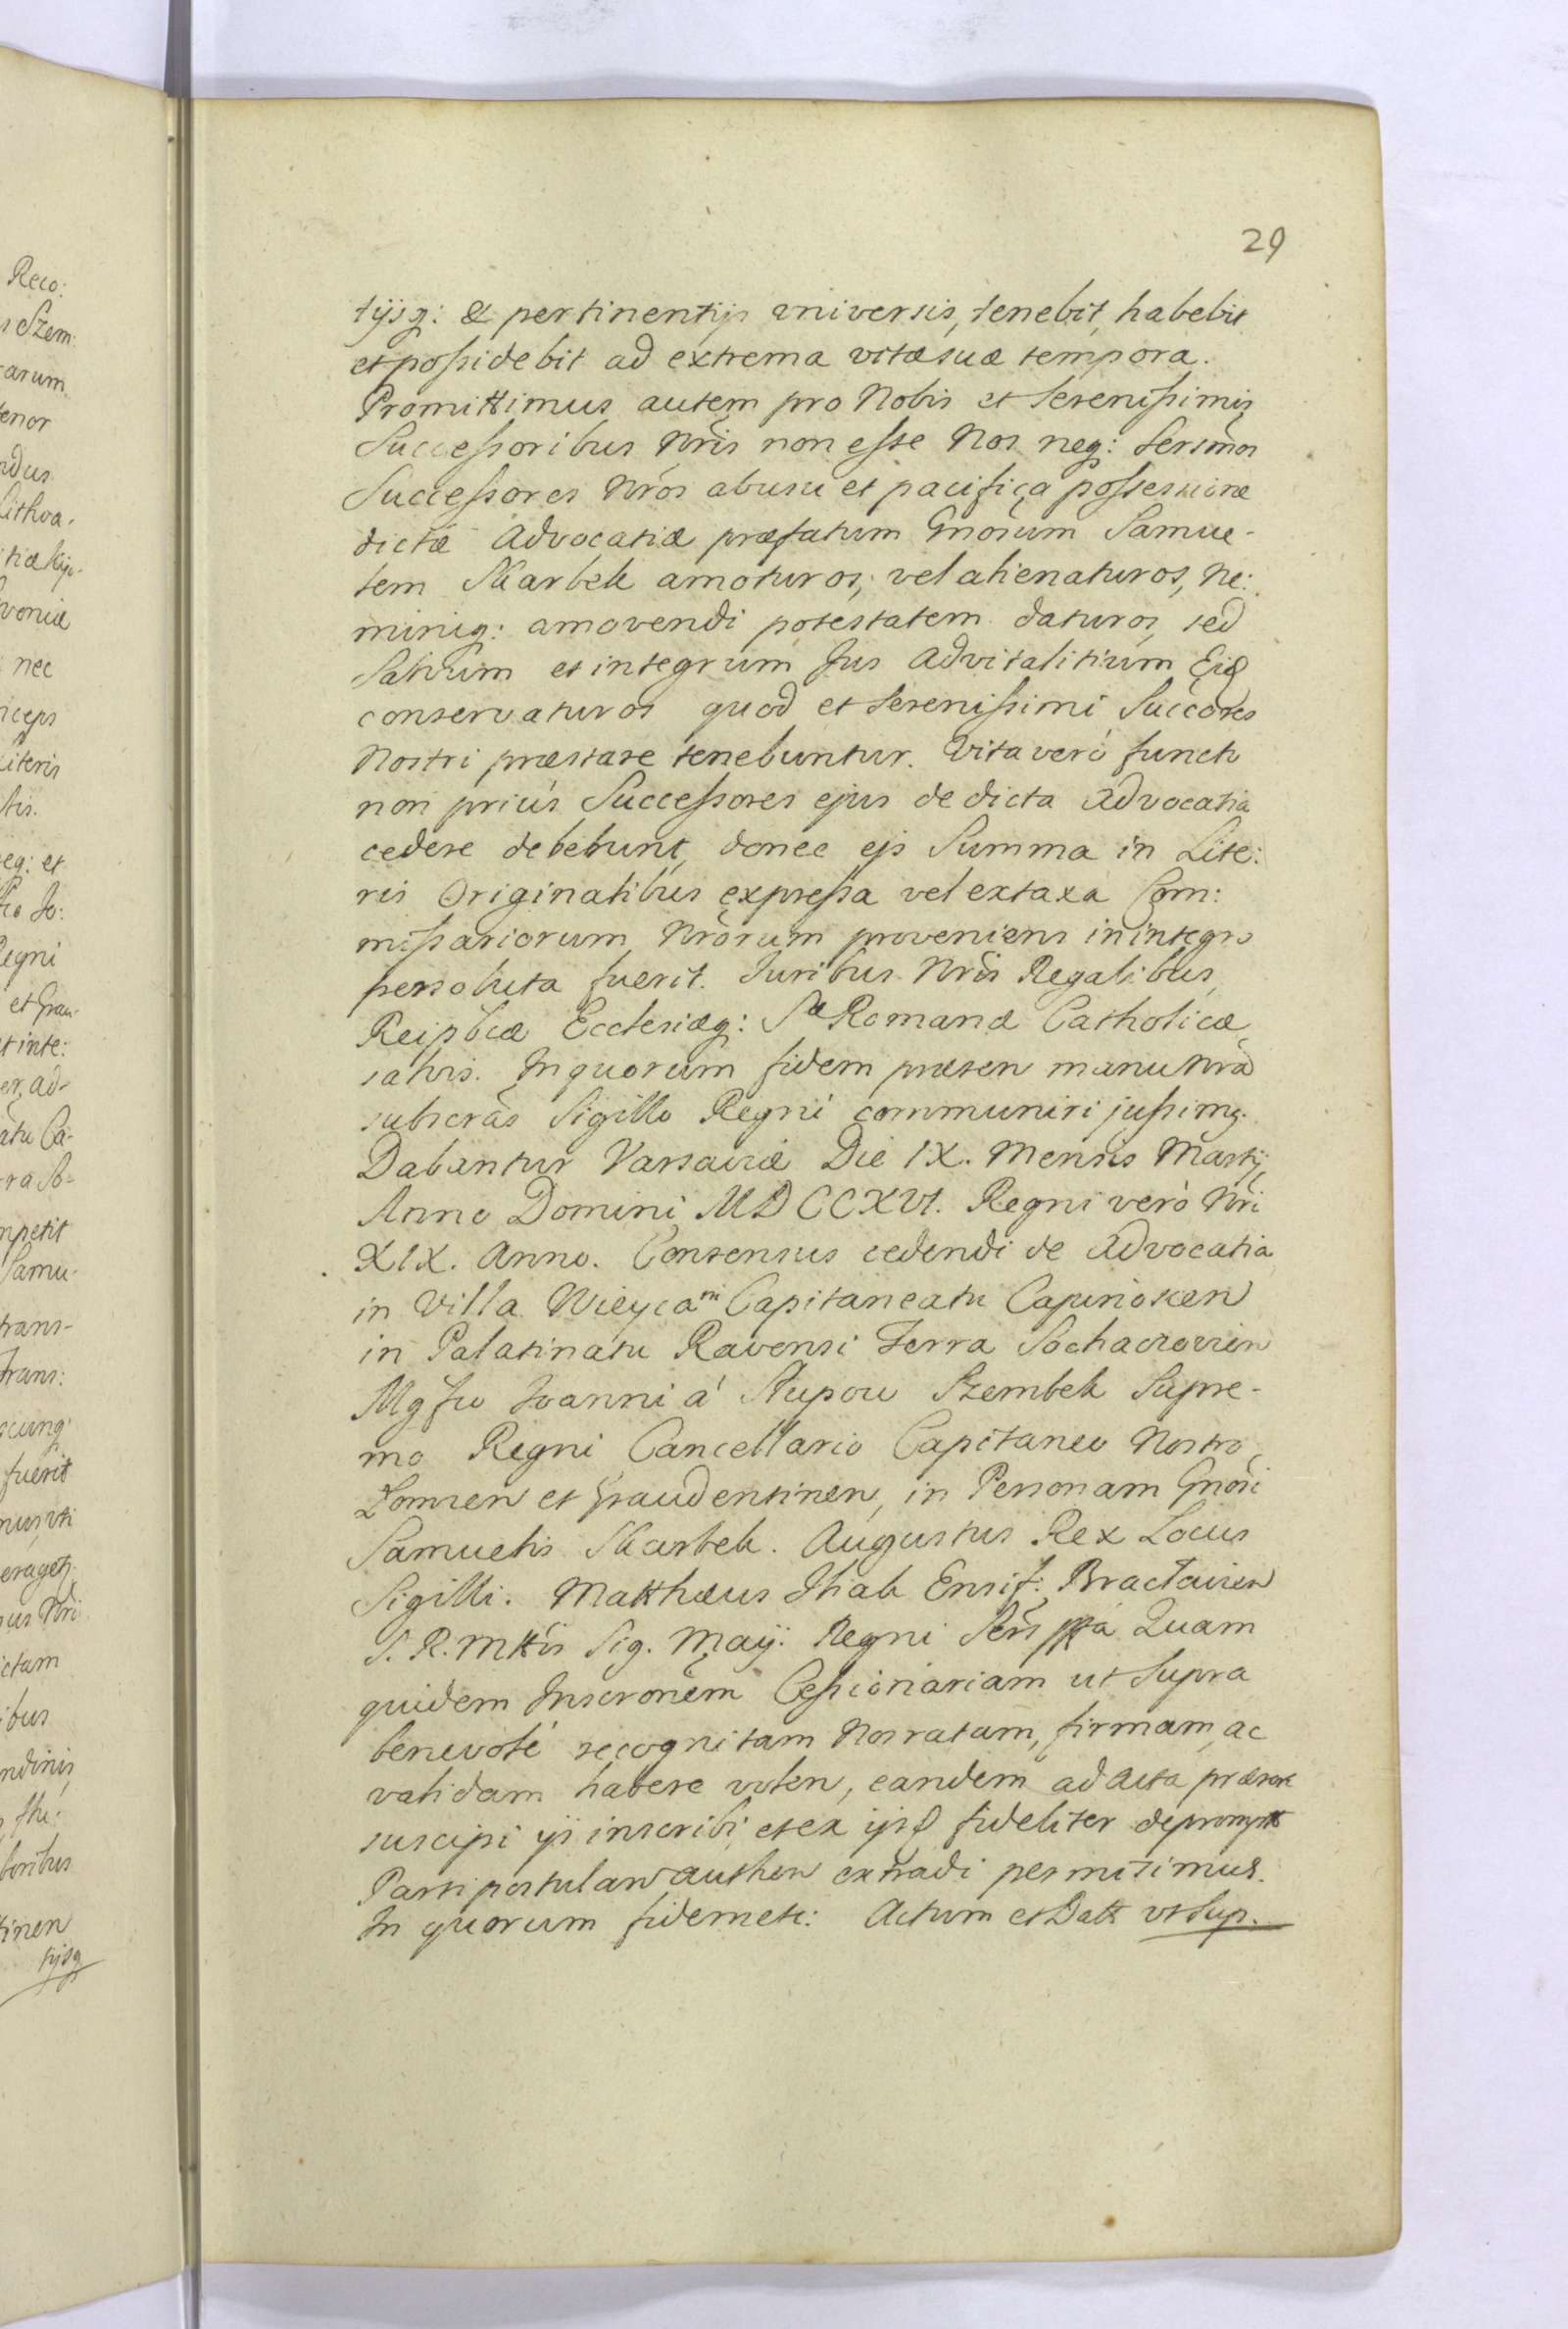 29
tijsq: & pertinentijs universis, tenebit, habebit
et possidebit ad extrema vitæ suæ tempora.
Promittimus autem pro Nobis et Serenissimis
Successoribus Nr̃is non esse Nos neq: Sersm̃os
Successores Nr̃os ab usu et pacifica possessione
dictæ Advocatiæ præfatum Gnõsum Samue-
lem Skarbek amoturos, vel alienaturos, Ne:
miniq: amovendi potestatem daturos, sed
Salvum et integrum Jus Advitalitium Eid
conservaturos quod et Serenissimi Succores
Nostri præstare tenebuntur. Vita verò functo
non priús Successores ejus de dicta Advocatia
cedere debebunt, donec ejs Summa in Lite:
ris Originalibus expressa vel ex taxa Com:
missariorum Nr̃orum proveniens in integro
persoluta fuerit. Juribus Nr̃is Regalibus,
Reipbcæ Ecclesiæq: Sæ Romanæ Catholicæ
salvis. In quorum fidem præsen manu Nr̃a
subscr̃as Sigillo Regni communiri jussimq.
Dabantur Varsaviæ Die IX. Mensis Martij
Anno Domini MDCCXVI. Regni verò Nr̃i
XIX. Anno. Consensus cedendi de Advocatia
in Villa Wieyca m Capitaneatu Capinoscen
in Palatinatu Ravensi Terra Sochaczovien
Mgfco Joanni á Słupow Szembek Supre-
mo Regni Cancellario Capitaneo Nostro
Łomzen et Graudentinen, in Personam Gnõsi
Samuelis Skarbek. Augustus Rex Locus
Sigilli. Matthæus Ihak Ensif: Bractavien
S. R. Mttis Sig. Maij: Regni Quam
quidem Inscronẽm Cessionariam ut Supra
benevolé recognitam Nos ratam, firmam, ac
validam habere volen, eandem ad Acta
suscipi ijs inscribi, et ex ijsd fideliter
Parti postulan authen extradi permisimus.
In quorum fidem etc: Actum et Datt ut Sup.